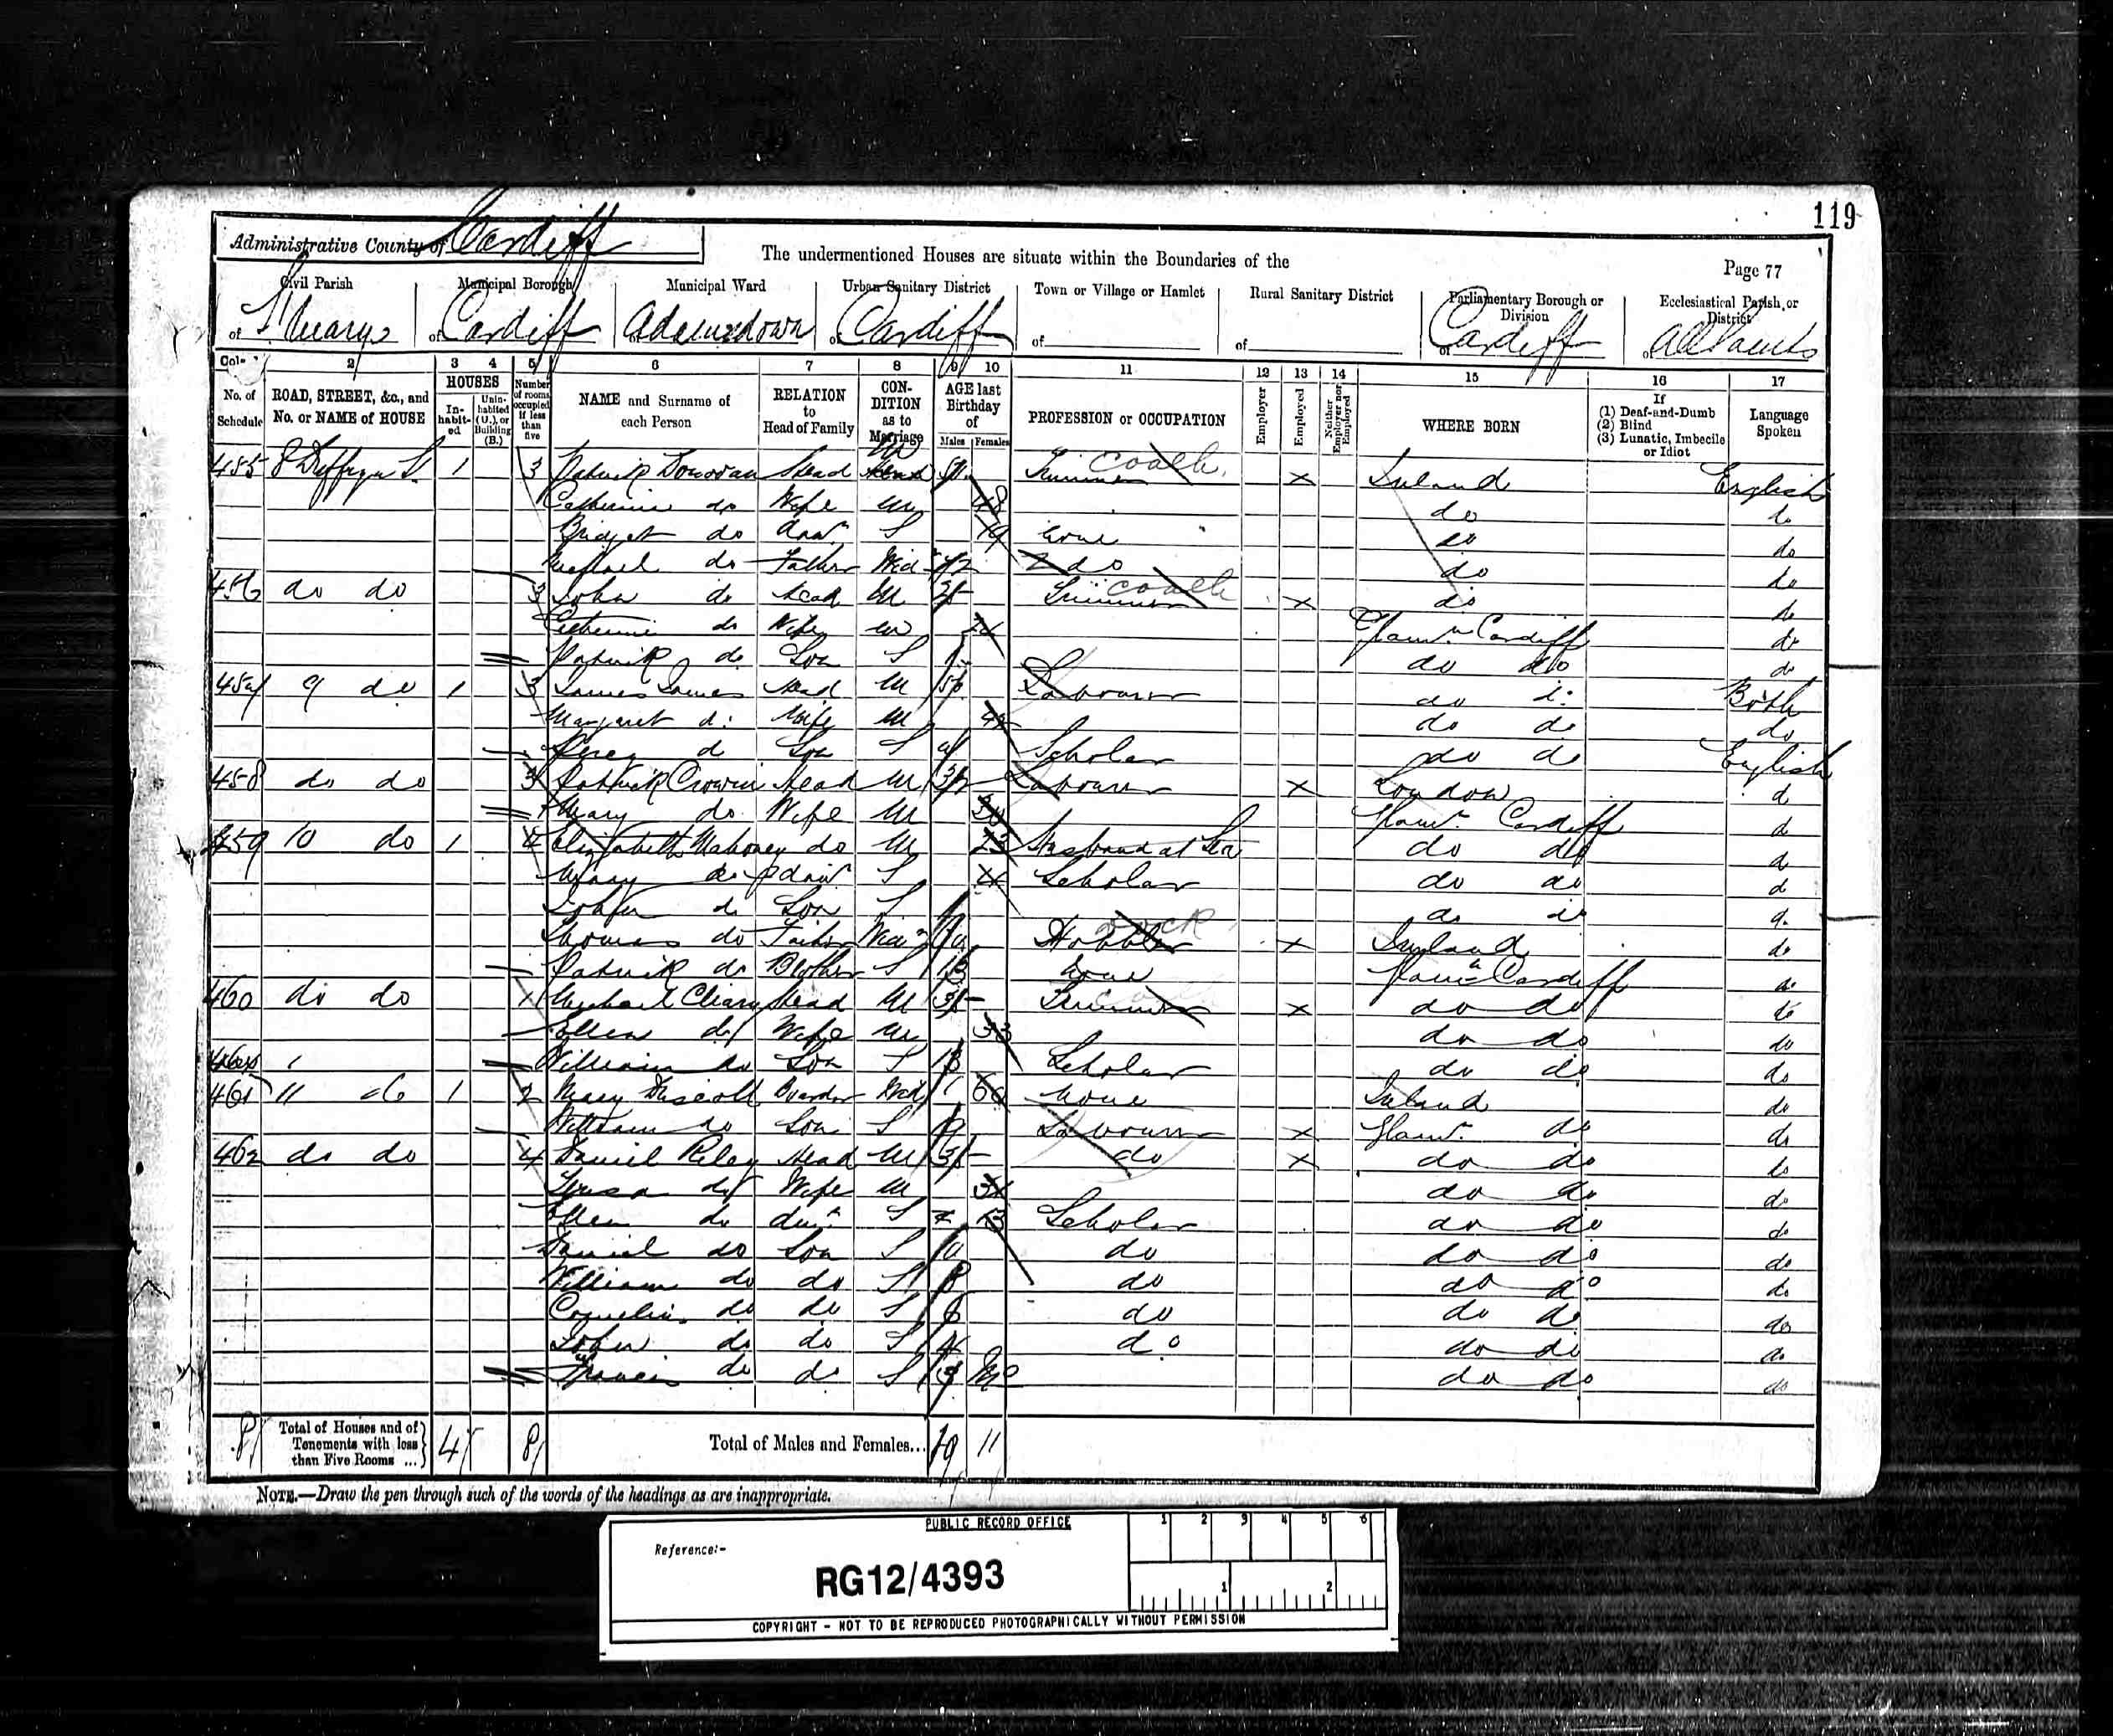 119
Administrative County of Cardiff
The undermentioned Houses are situate within the Boundaries of the
Page 77
Civil Parish
Municipal Borough
Municipal Ward
Urban Sanitary District
Town or Village or Hamlet
Rural Sanitary District
Parliamentary Borough or Division
Ecclesiastical Parish, or District
of St Marys
of Cardiff
of Adamsdown
of Cardiff
of
of
of Cardiff
of All Saints
2 3 4 5 6 7 8 9 10 11 12 13 14 15 16 17
No. of Schedule
ROAD, STREET, &c., and No. or NAME of HOUSE
HOUSES
In-habit-ed
Unin-habited (U.), or Building (B.)
Number of rooms occupied if less than five
NAME and Surname of each Person
RELATION to Head of Family
CON-DITION as to Marriage
AGE last Birthday of
Males Females
PROFESSION or OCCUPATION
Employer
Employed
Neither Employer nor Employed
WHERE BORN
If
(1) Deaf-and-Dumb
(2) Blind
(3) Lunatic, Imbecile or Idiot
Language Spoken
455 8 Dyffryn St. 1 3 Patrick Donovan Head M Trimmer Coal x Ireland English
Catherine do Wife M 48 do do
Bridget do daur S 19 None do do
Michael do Father Wid 72 do do do
do do 3 John do Head M Trimmer Coal x do do
Catherine do Wife M Glamn Cardiff do
Patrick do Son S do do do
457 9 do 1 3 James James Head M Labourer do do Both
Margaret do Wife M do do do
Percy do Son S Scholar do do English
458 do do 3 Patrick Head M Labourer x London do
Mary do Wife M Glamn Cardiff do
459 10 do 1 4 Elizabeth Mahoney do M Husband at Sea do do do
Mary do daur S 4 Scholar do do do
John do Son S do do do
Thomas do Wid Hobbler Dock x Ireland do
Patrick do Brother S 13 None Glamn Cardiff do
460 do do Michael Cleary Head M Trimmer x do do do
Ellen do Wife M 33 do do do
William do Son S 13 Scholar do do do
461 11 do 1 2 Mary Driscoll Wid 60 None Ireland do
William do Son S Labourer x Glamn do do
462 do do 4 Daniel Riley Head M do x do do do
do Wife M do do do
Ellen do daur S 13 Scholar do do do
Daniel do Son S do do do do
William do do S 8 do do do do
Cornelius do do S 6 do do do do
John do do S 4 do do do do
Francis do do S 3 Mo do do do
8 Total of Houses and of Tenements with less than Five Rooms ... 4 8 Total of Males and Females... 19 11
NOTE.—Draw the pen through such of the words of the headings as are inappropriate.
PUBLIC RECORD OFFICE
1 2 3 4 5 6
Reference:-
RG12/4393
1 2
COPYRIGHT - NOT TO BE REPRODUCED PHOTOGRAPHICALLY WITHOUT PERMISSION